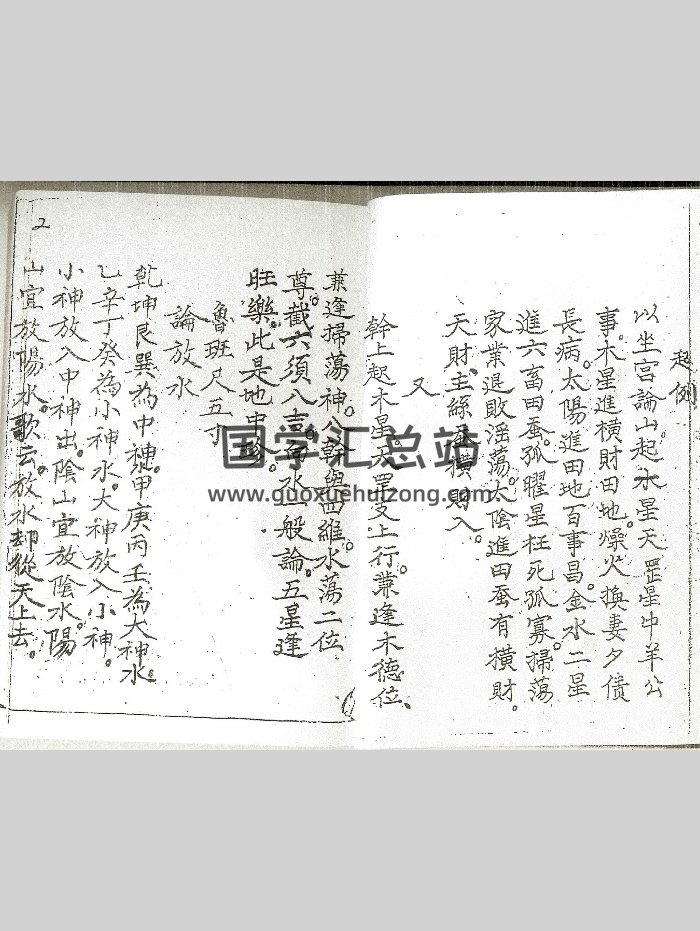 起例
以坐宫論山起水星天罡星中羊公
事。木星進橫財田地。燥火換妻夕債
長病。太陽進田地百事昌。金水二星
進六畜田蚕。孤曜星枉死孤寡。掃荡
家業退敗淫荡。太陰進田蚕有橫財。
天財主絲蚕橫財入。
又
幹上起木星。天罡支上行。兼逢木德位、
兼逢掃荡神。八幹與四維水荡二位
尊。截六須八吉。水一般論。五星逢
旺樂。此是地中珍。
魯班尺五寸
論放水
乾坤艮巽為中神。甲庚丙壬為大神水。
乙辛丁癸為小神水。大神放入小神。
小神放入中神出。陰山宜放陰水。陽
山宜放陽水。歌云。放水却從天上去。
2
国学汇总站
www.guoxuehuizong.com